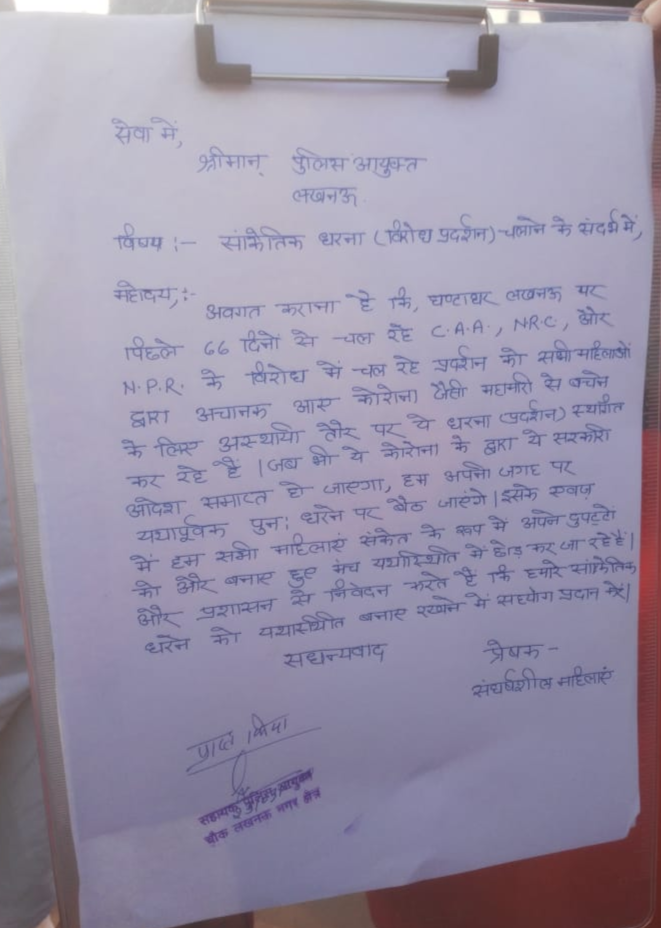 सेवा में,
श्रीमान् पुलिस आयुक्त
लखनऊ
विषय :- सांकेतिक धरना (विरोध प्रदर्शन) चलाने के संदर्भ में,
महोदय,:-
अवगत कराना है कि, घण्टाघर लखनऊ पर
पिछले 66 दिनों से चल रहे C.A.A., N.R.C, और
N.P.R. के विरोध में चल रहे प्रदर्शन को सभी महिलाओं
द्वारा अचानक आए कोरोना जैसी महामारी से बचने
के लिए अस्थायी तौर पर ये धरना (प्रदर्शन) स्थगित
कर रहे है । जब भी ये कोरोना के द्वारा ये सरकारी
आदेश समाप्त हो जाएगा, हम अपनी जगह पर
यथापूर्वक पुनः धरने पर बैठ जाएंगे । इसके एवज़
में हम सभी महिलाएं संकेत के रूप में अपने दुपट्टो
को और बनाए हुए मंच यथास्थिति में छोड़ कर जा रहे हैं।
और प्रशासन से निवेदन करते है कि हमारे सांकेतिक
धरने को यथास्थिति बनाए रखने में सहयोग प्रदान करें।
सधन्यवाद
प्रेषक -
संघर्षशील महिलाएं
प्राप्त किया
सहायक पुलिस आयुक्त
चौक लखनऊ नगर क्षेत्र